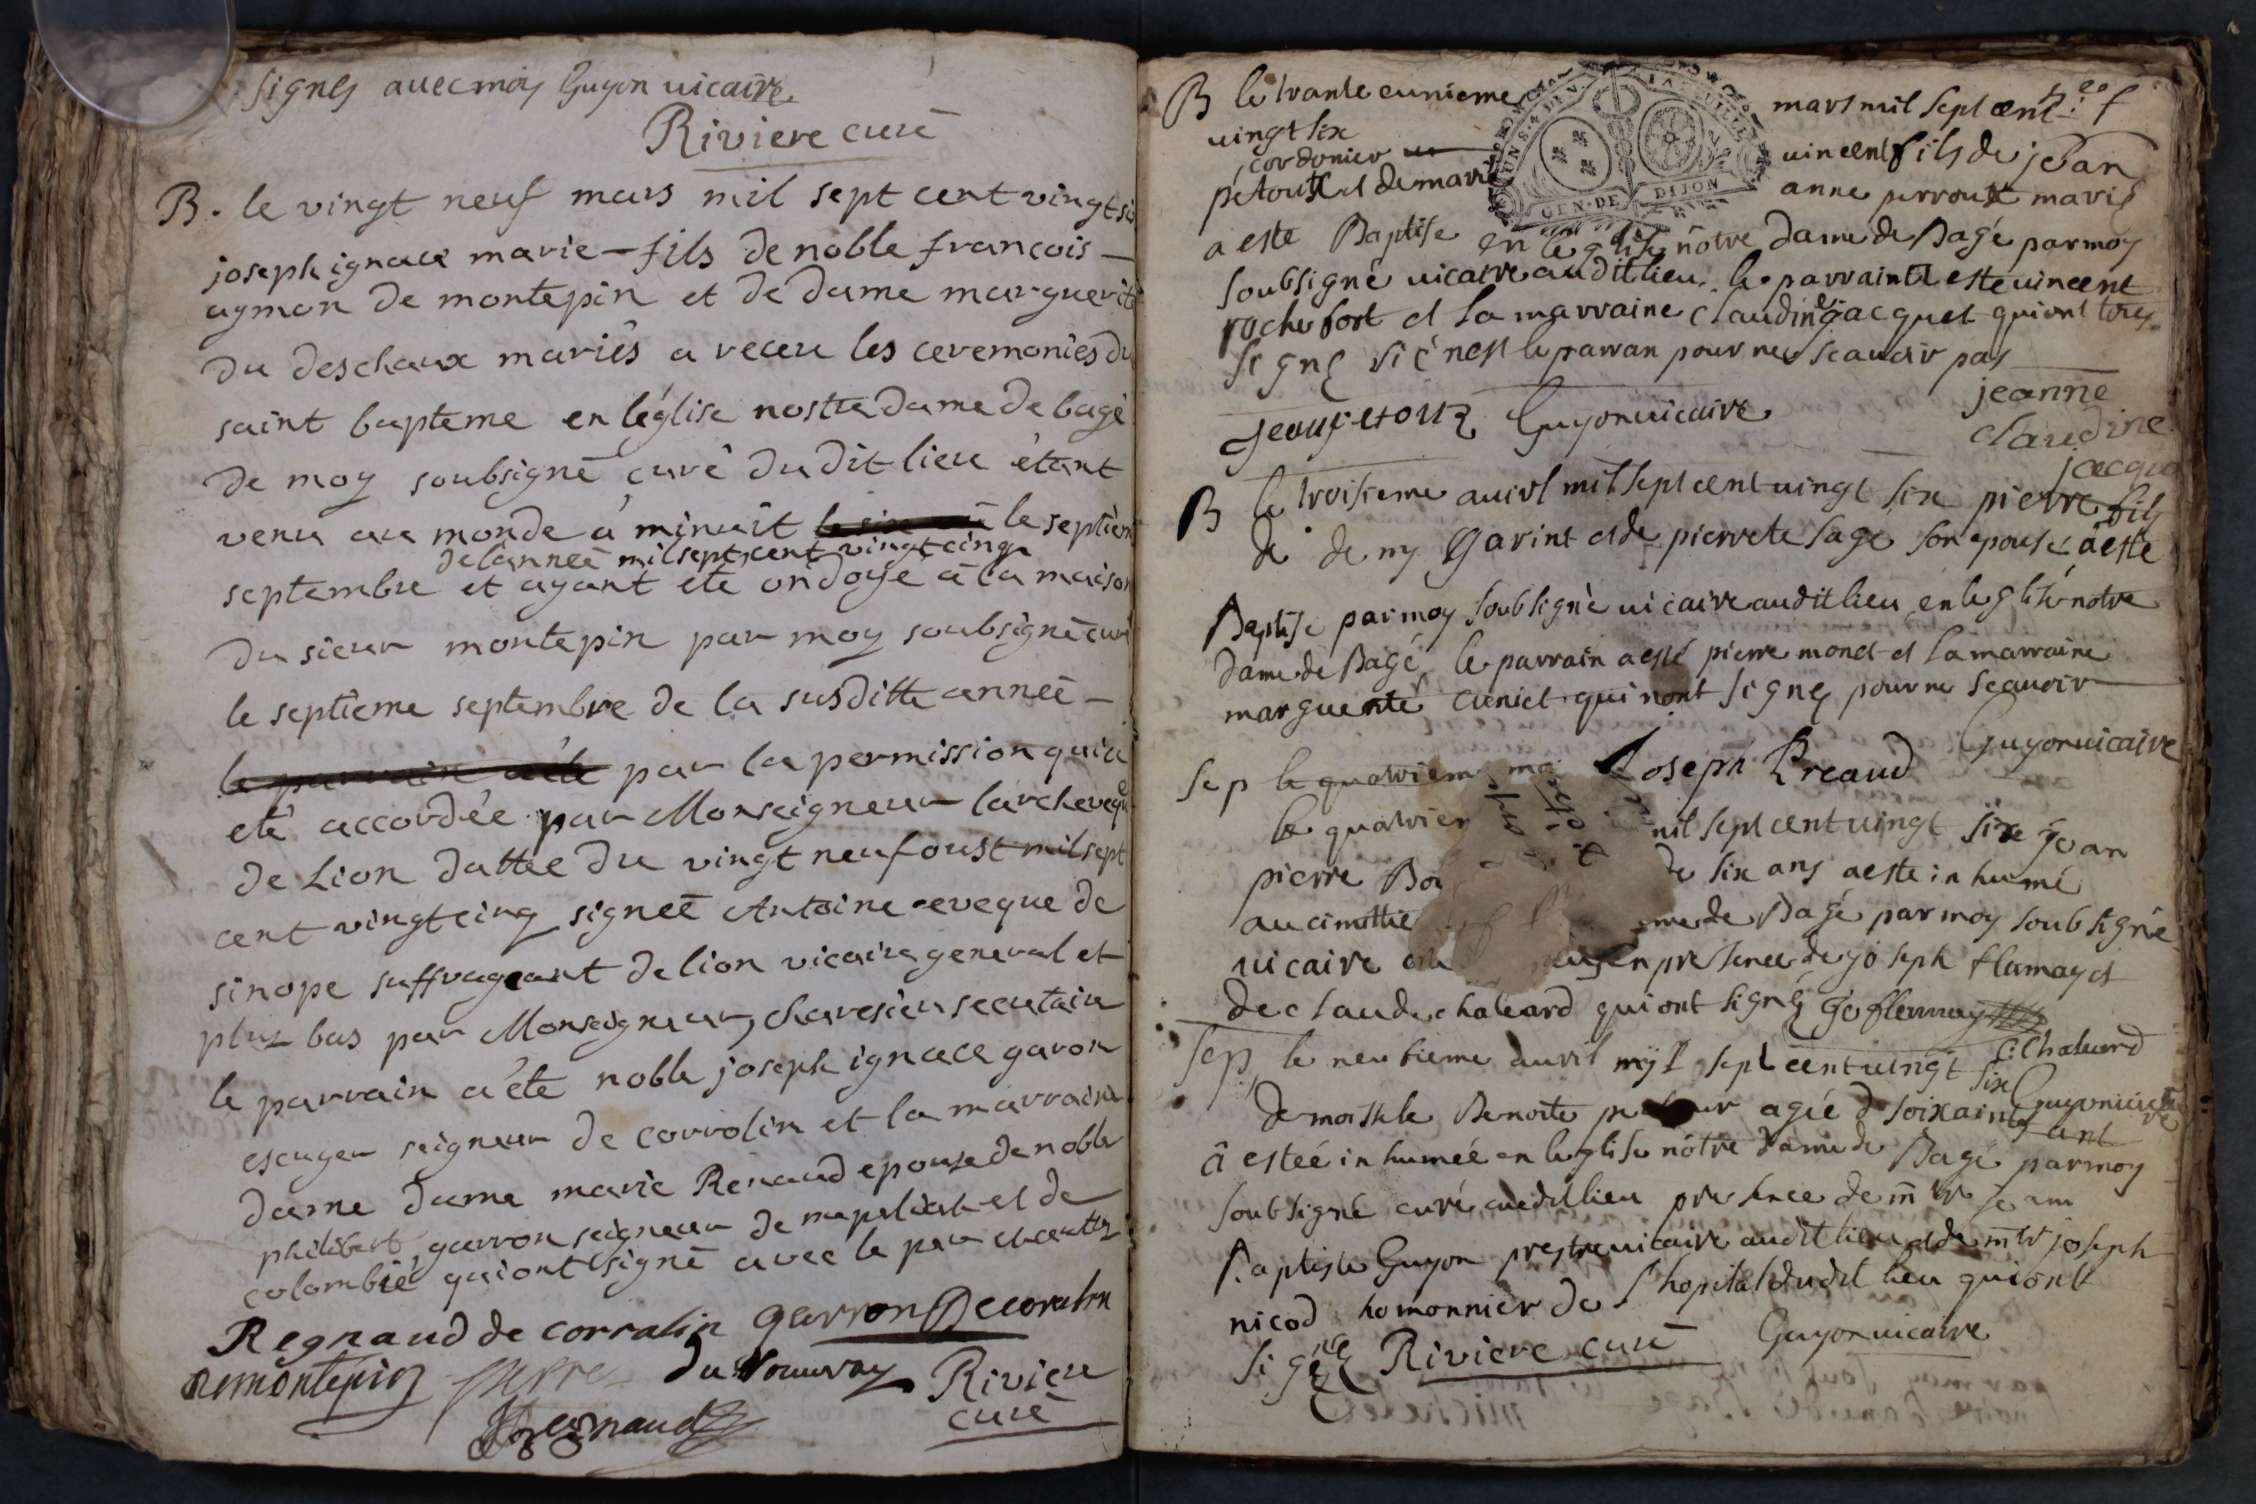 signes avec moy Guyon vicaire
Riviere curé
B. le vingt neuf mars mil sept cent vingt si
joseph ignace marie - fils de noble françois -
aymon de montepin et de dame marguerite
du deschaux mariés a receu les ceremonies du
saint bapteme en l'église nostre dame de bagé
de moy soubsigné curé du dit lieu étant
venu au monde à minuit le septiem
de l'année mil sept cent vingt cinq
septembre et ayant été ondoyé à la maison
du sieur montepin par moy soubsigné curé
le septieme septembre de la susditte année -
par la permission qui a
eté accordée par Monseigneur l'archeveque
de Lion dattée du vingt neuf oust mil sept
cent vingt cinq signeé Antoine eveque de
sinope suffrageant de lion vicaire general et
plus bas par Monseigneur, secretaire
le parrain a été noble joseph ignace garon
escuyer seigneur de corrolin et la marraine
dame dame marie Renaud epouse de noble
philibert garron seigneur de et de
colombié qui ont signé avec le per
Regnaud de corralin garron Decoralin
Demontepin Riviere
curé
Regnaud
B le trante eunieme mars mil sept cent
vingt six vincent fils de jean
cordonier
petoux et de marie anne perroux mariés
a este Baptise en leglise notre dame de Bagé par moy
soubsigné vicaire audit lieu le parrain a este vincent
rochefort et la marraine claudine jacquet qui ont tous
signé si c'nest le parran pour ne scavoir pas
jean petoux Guyon vicaire jeanne
claudine
jacque
B le troisieme avirl mil sept cent vingt six pierre fils
de deny Gavint et de pierrete sage son epouse a este
Baptise par moy soubsigné vicaire audit lieu en leglise notre
dame de Bagé le parrain a esté pierre monet et la marraine
marguerite cuniet qui nont signez pour ne scavoir
Guyon vicaire
sep le quatriem Joseph Preaud
le quatriem mil sept cent vingt six jean
pierre de six ans a este inhumé
au cimettie de Bagé par moy soubsigné
vicaire en presence de joseph flamay et
de claude chaleard qui ont signéz jo flammay
C: Chaleard
Guyon vicaire
sep le neufieme avril mil sept cent vingt six
demoiselle Benoite agée de soixainte ans
a estée inhumée en leglise notre dame de Bagé par moy
soubsigné curé audit lieu presence de mre jean
Baptiste Guyon prestre vicaire audit lieu et de mre joseph
nicod homonnier de l'hopital dudit lieu qui ont
signé Riviere curé Guyon vicaire
GEN · DE DIJON